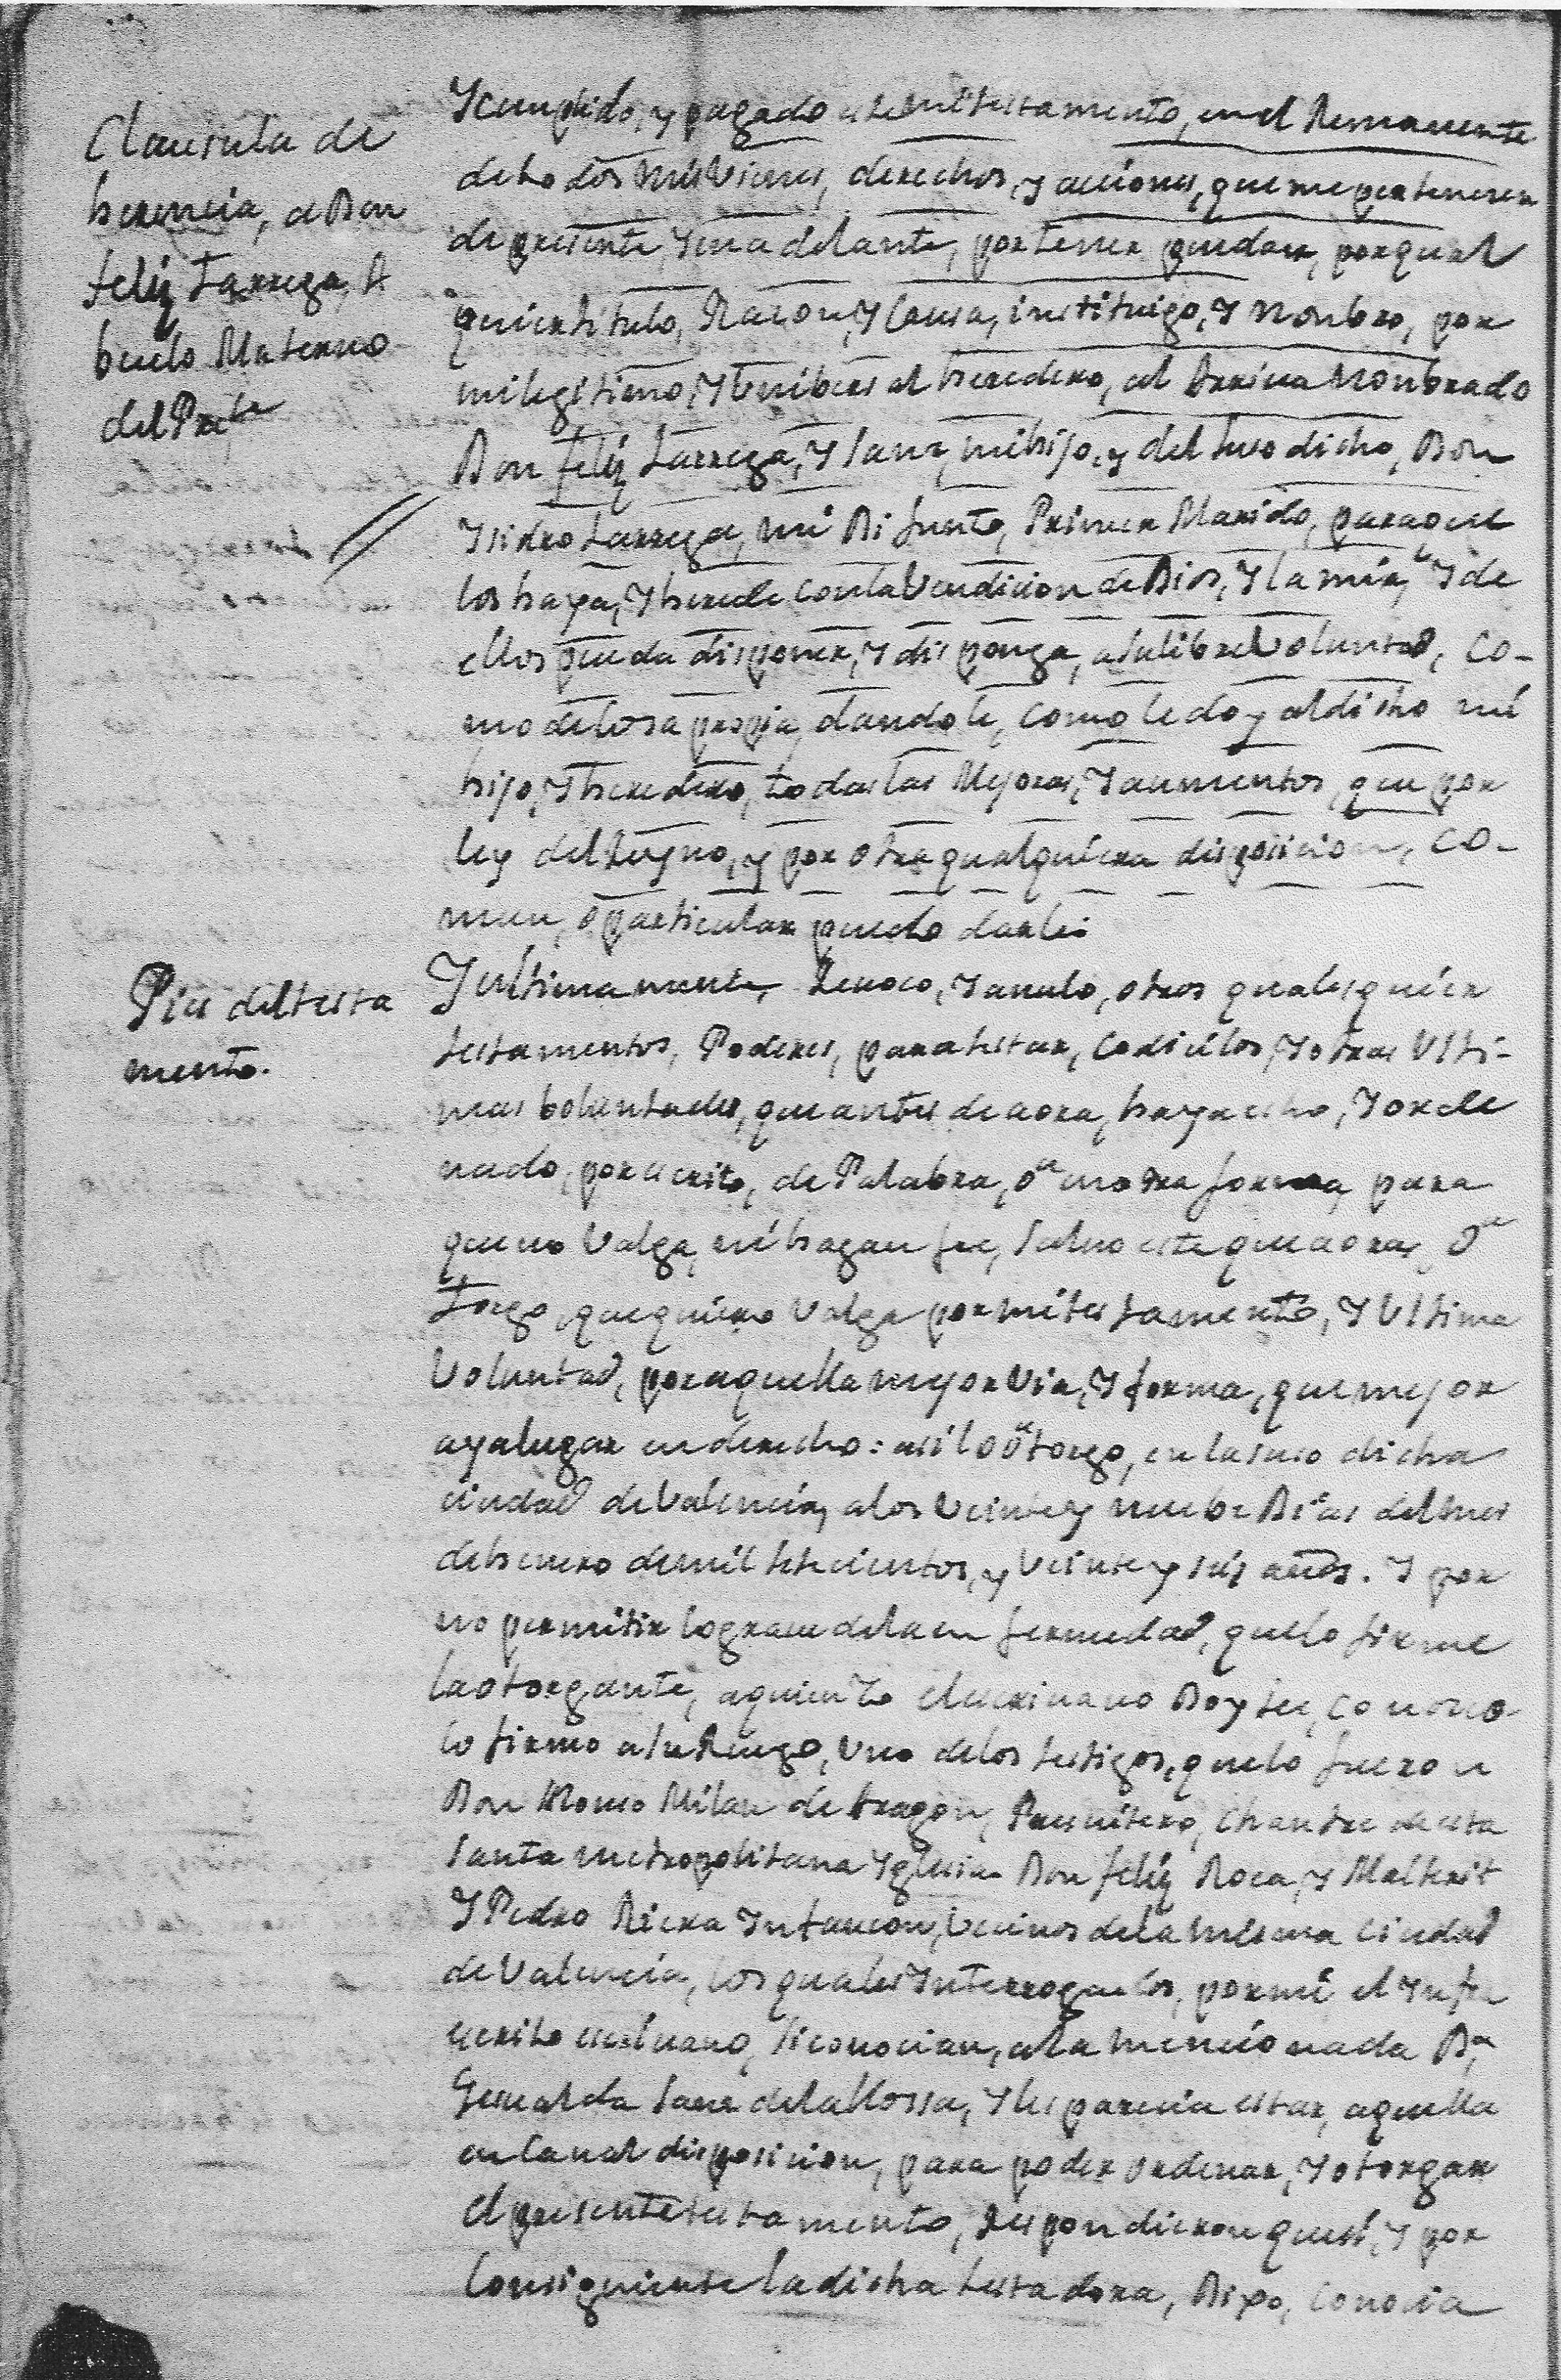 Clausula de
herencia, a Don
feliz Tarrega, A
buelo Materno
del Pre.te
Pie del testa
mento.
Y cumplido, y pagado este mi testamento, en el Remanente
de todos mis Vienes, derechos, y acciones, que me pertenecen
de presente, y en adelante, pertenecer puedan, por qual
quier titulo, Racon, y Causa, instituigo, y Nonbro, por
mi legitimo, y Unibersal heredero, al Arriva Nonbrado
Don feliz tarrega, y Sanz, mi hijo, y del suso dicho, Don
Ysidro tarrega, mi Difunto, Primer Marido, para que
los haya, y herede con la Vendicion de Dios, y la mia, y de
ellos pueda disponer, y disponga, a su libre Voluntad, co-
mo de cosa propia, dandole, como le doy al dicho mi
hijo, y heredero, todas las Mejoras, y aumentos, que por
ley del Reyno, y por otra qualquiera disposicion, co-
mun, o particular puedo darle.
Y ultimamente, Revoco, y anulo, otros qualesquier
testamentos, Poderes, para testar, Codicilos, y otras Ulti-
mas boluntades, que antes de aora, haya echo, y orde
nado, por escrito, de Palabra, o en otra forma, para
que no Valga, ni hagan fee, salvo este que aora, o
torgo, que quiero Valga por mi testamento, y Ultima
Voluntad, por aquella mejor Via, y forma, que mejor
aya lugar en derecho: asi lo otorgo, en la suso dicha
ciudad de Valencia, a los Veinte y nuebe Dias del mes
de henero de mil setecientos, y Veinte y seiz años. Y por
no permitir lo grave de la enfermedad, que lo firme
la otorgante, a quien Yo el escrivano Doy fee, conosco
lo firmo a su Ruego, Uno de los testigos, que lo fueron
Don Alonso Milan de Aragon, Presvitero, Chantre de esta
Santa metropolitana Yglesia Don feliz Roca, y Malferit
Y Pedro Riera Ynfancon, Vecinos de la misma Ciudad
de Valencia, los quales Ynterrogados, por mi el Ynfra
escrito escrivano, si conocian, a la mencionada D.ª
Gerualda Sanz de la Llossa, y les parecia estar, aquella
en Cabal disposicion, para poder ordenar, y otorgar
el presente testamento, Respondieron que si, y por
Consiguiente la dicha testadora, Dixo, conocia